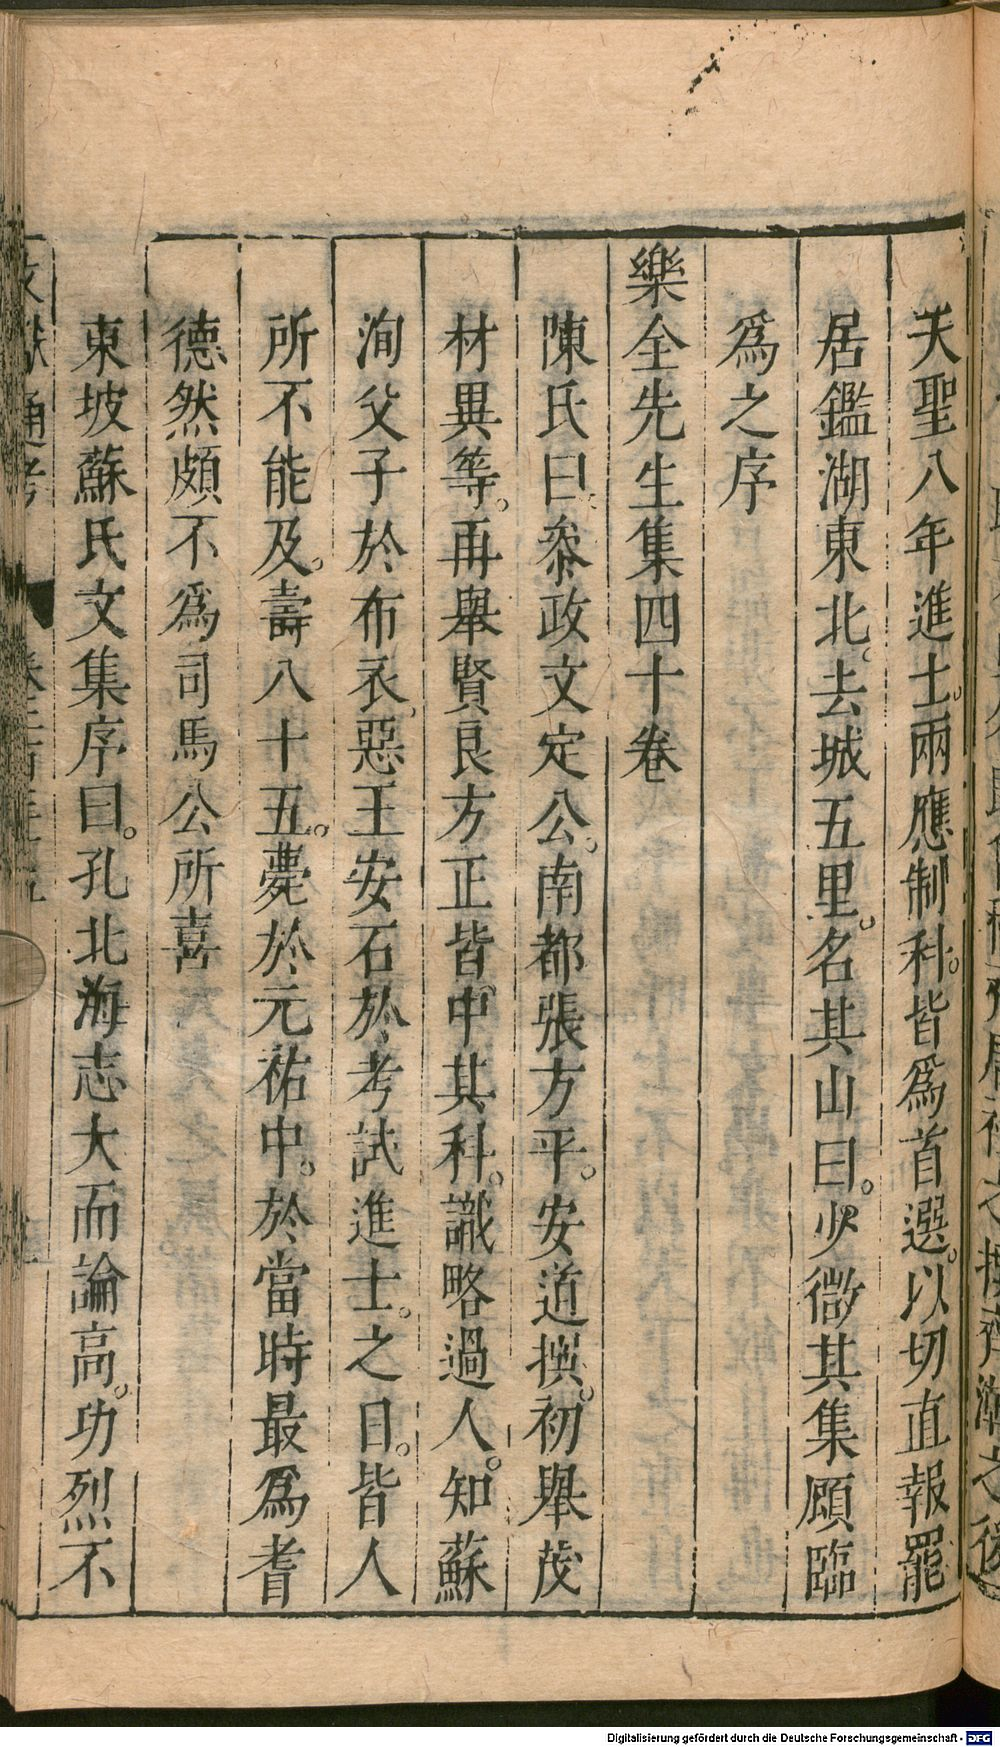 天聖八年進士。兩應制科。皆爲首選。以切直報罷
居鑑湖東北。去城五里。名其山曰。少微其集顧臨
爲之序
樂全先生集四十卷
陳氏曰。參政文定公。南都張方平。安道撰。初舉茂
材異等。再舉賢良方正皆中其科。識略過人。知蘇
洵父子於布衣。惡王安石於考試進士。之日。皆人
所不能及。壽八十五。薨於元祐中。於當時最爲耆
德然頗不爲司馬公所喜
東坡蘇氏文集序曰。孔北海志大而論高。功烈不
通考
Digitalisierung gefördert durch die Deutsche Forschungsgemeinschaft - DFG